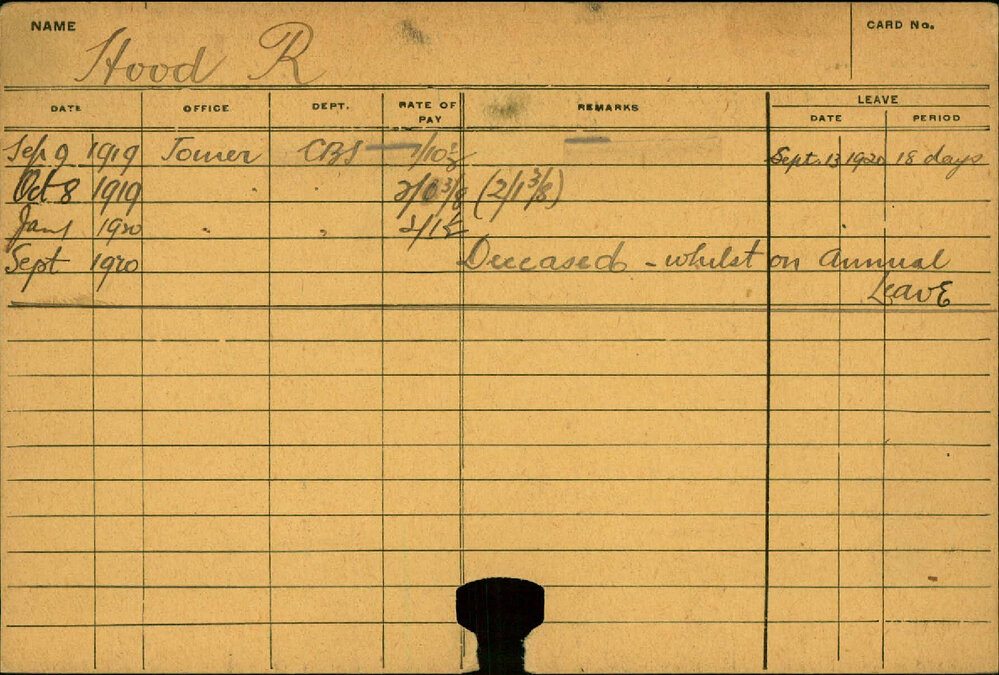 NAME Hood R CARD No.
DATE OFFICE DEPT. RATE OF PAY REMARKS LEAVE
DATE PERIOD
Sep 9 1919 CBS 1/10½ Sept. 13 1920 18 days
Oct 8 1919 " " 2/0 3/8 (2/1 3/8)
Jany 1920 " "
Sept 1920 Deceased - whilst on annual
Leave